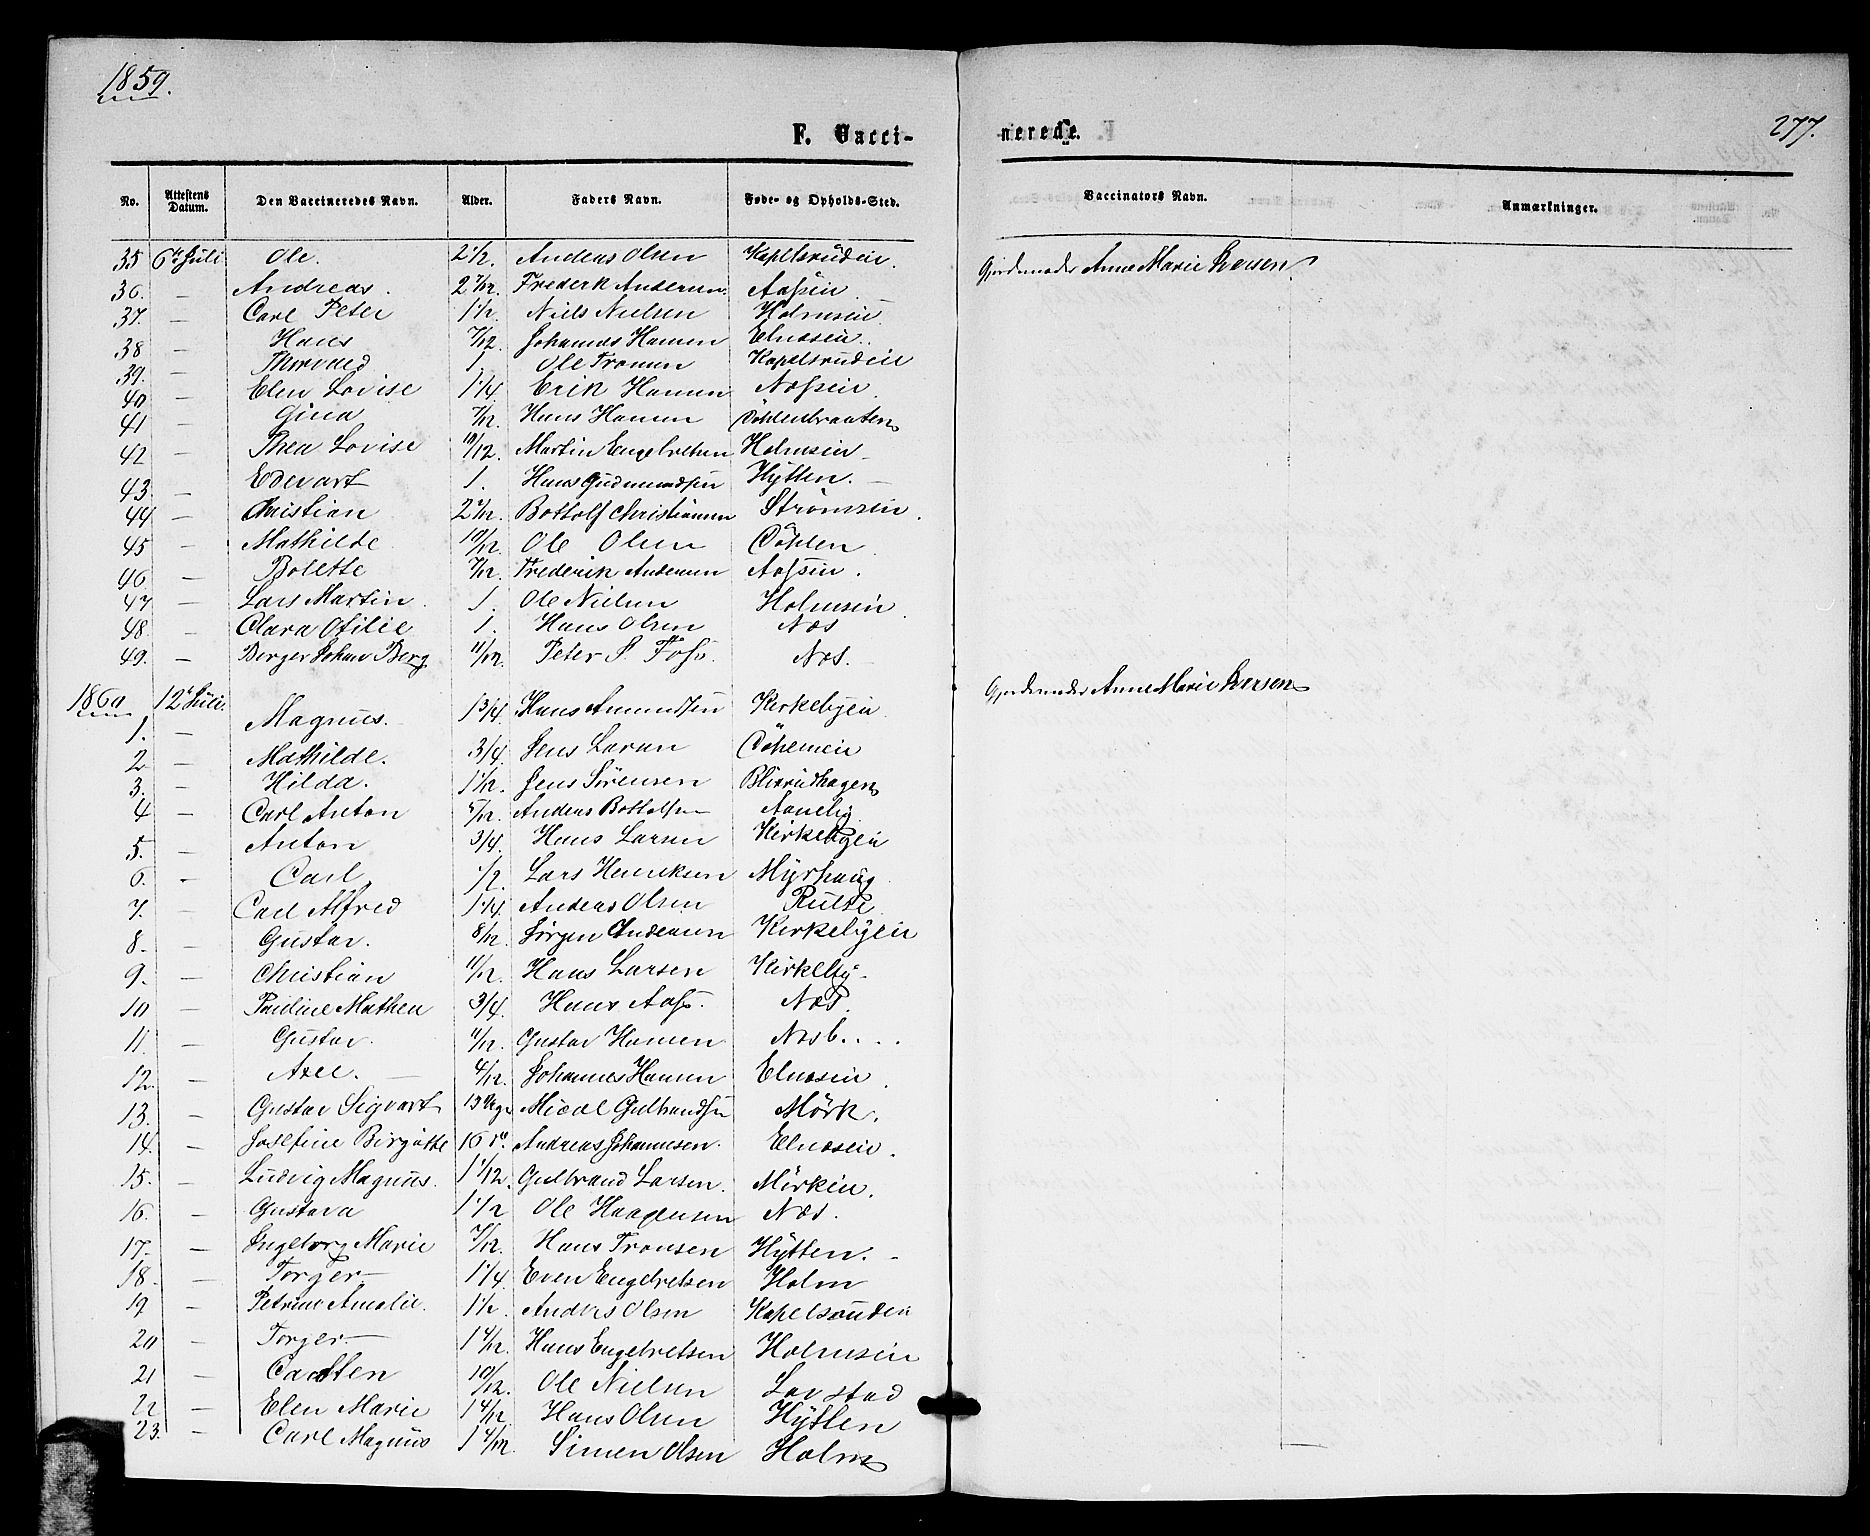 1859.
F. Vacci-
nerede.
277.
No. Attestens Datum. Den Vaccineredes Navn. Alder. Faders Navn. Føde- og Opholds-Sted. Vaccinators Navn. Anmærkninger.
35 6te Juli Ole. 2 1/2. Anders Olsen Gjordemoder Anne Marie Iversen
36. — Andreas. 2 7/12. Frederk Andersen. Aassein
37. — Carl Peter 1 1/2. Niels Nielsen Holmsein
38 — Hans 7/12. Johannes Hansen Elnæsein.
39. — Thorvald 1. Ole Tronsen Kapelsrudein
40 — Elen Lovise 1 1/4. Erik Hansen Næssein.
41 — Gina 7/12. Hans Hansen
42 — Thea Lovise 10/12. Martin Engelretsen Holmsein
43. — Edevart 1. Hans Gudmundsen Hytten.
44 — Christian 2 Bottolf Christiansen Strømsein.
45 — Mathilde 10/12. Ole Olsen
46 — Bolette 7/12. Frederik Andersen Aassein.
47 — Lars Martin. 1. Ole Nielsen Holmsein
48 — Clara Otilie 1. Hans Olsen Næs
49. — Berger Johan Berg 11/12. Peter Foss. Næs.
1860 12te Juli. Gjordemoder Anne Marie Iversen
1. — Magnus. 1 3/4. Hans Amundsen Kirkebyein
2 — Mathilde. 3/4. Jens Larsen
3. — Hilda. 1 1/2. Jens Sørensen Blixrudhagen
4 — Carl Anton 5/12. Anders Bottolfsen Aaneby
5. — Anton 3/4. Hans Larsen Kirkebyein
6. — Carl 1/2. Lars Henriksen Myrhaug
7. — Carl Alfred 1 1/4. Anders Olsen
8. — Gustav. 8/12. Jørgen Andersen Kirkebyein
9. — Christian 11/12. Hans Larsen Kirkeby
10 — Pauline Mathea 3/4. Hans Aass. Næs
11. — Gustav. 11/12. Gustav Hansen Næsb....
12. — Axel. 4/12. Johannes Hansen Elnæsein.
13. — Gustav Sigvart 13 Uger Micael Gulbrandsen Mørk.
14. — Josefine Birgitte 16 Andreas Johannesen. Elnæsein.
15. — Ludvig Magnus. 1 1/12. Gulbrand Larsen. Mörkein.
16. — Gustava 1 1/2 Ole Haagensen Næs.
17. — Ingeborg Marie 7/12. Hans Tronsen Hytten.
18. — Torger 1 1/4. Even Engelretsen Holm
19 — Petrine Amalie. 1 1/2. Anders Olsen Kapelsrudein
20 — Torger 1 4/12. Hans Engelretsen Holmsein
21 — Carsten 10/12. Ole Nielsen
22 — Elen Marie 1 4/12. Hans Olsen Hytten
23. Carl Magnus 1 4/12. Simen Olsen Holm